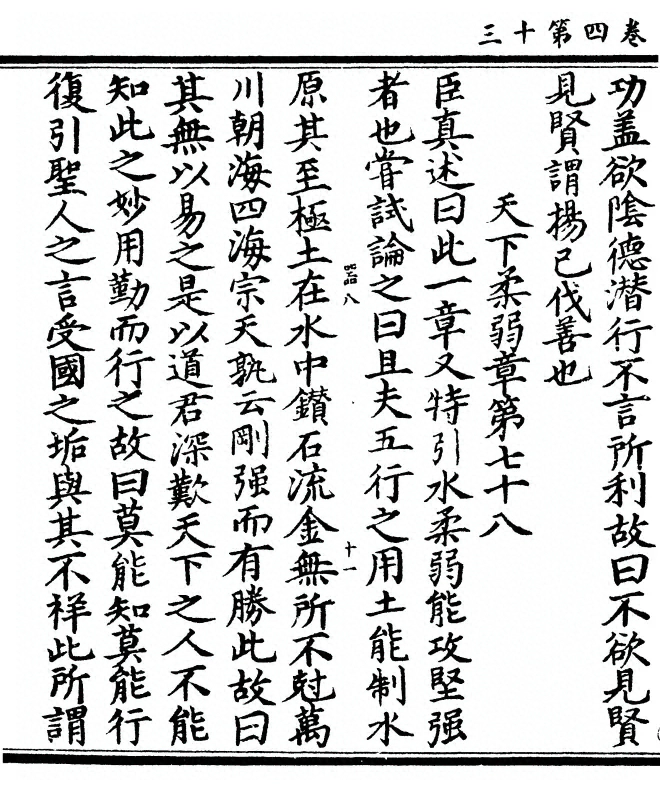 卷四第十三
功盖欲隂德潛行不言所利故曰不欲見賢
見賢謂揚己伐善也
天下柔弱章第七十八
臣真述曰此一章又特引水柔弱能攻堅强
者也嘗試論之曰且夫五行之用土能制水
原其至極土在水中鑚石流金無所不尅萬
川朝海四海宗天孰云剛强而有勝此故曰
其無以易之是以道君深歎天下之人不能
知此之妙用勤而行之故曰莫能知莫能行
復引聖人之言受國之垢與其不祥此所謂
八
十一